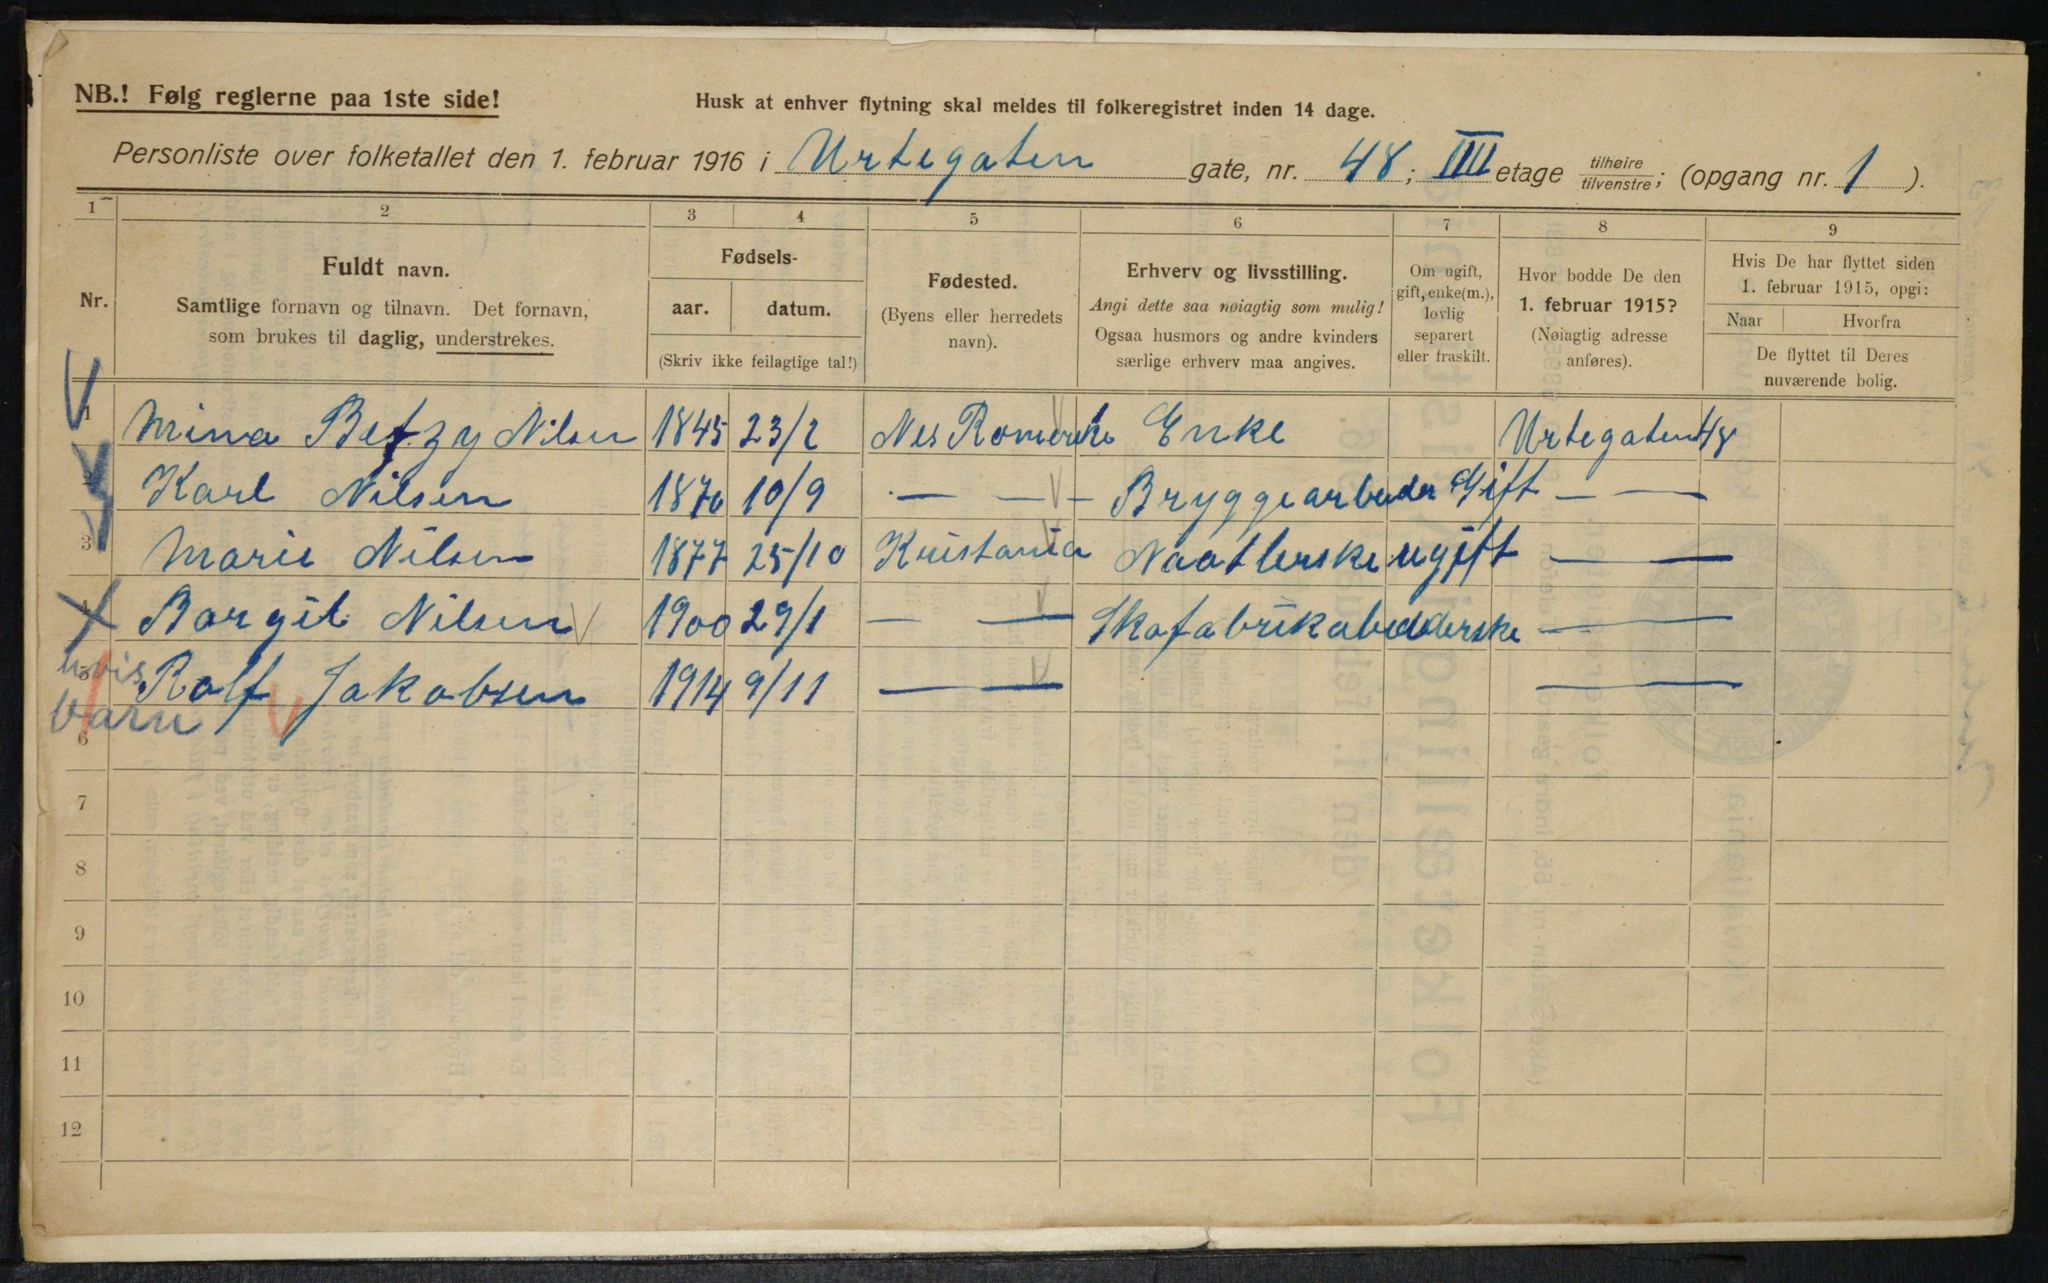 NB.! Følg reglerne paa 1ste side!
Husk at enhver flytning skal meldes til folkeregistret inden 14 dage.
Personliste over folketallet den 1. februar 1916 i Urtegaten gate, nr. 48; IIII etage tilhøire/tilvenstre; (opgang nr. 1 ).
1 2 3 4 5 6 7 8 9
Nr.
Fuldt navn.
Samtlige fornavn og tilnavn. Det fornavn,
som brukes til daglig, understrekes.
Fødsels-
aar. datum.
(Skriv ikke feilagtige tal!)
Fødested.
(Byens eller herredets
navn).
Erhverv og livsstilling.
Angi dette saa nøiagtig som mulig!
Ogsaa husmors og andre kvinders
særlige erhverv maa angives.
Om ugift,
gift, enke(m.),
lovlig
separert
eller fraskilt.
Hvor bodde De den
1. februar 1915?
(Nøiagtig adresse
anføres).
Hvis De har flyttet siden
1. februar 1915, opgi:
Naar Hvorfra
De flyttet til Deres
nuværende bolig.
1 Mina Betzy Nilsen 1845 23/2 Nes Romerike Enke Urtegaten 48
2 Karl Nilsen 1870 10/9 — — Bryggearbeider Gift — —
3 Marie Nilsen 1877 25/10 Kristania Naatlerske ugift — —
4 Borgil Nilsen 1900 29/1 — — Skofabrikabeiderske — —
5 Rolf Jakobsen 1914 9/11 — — — —
hvis
barn
6
7
8
9
10
11
12